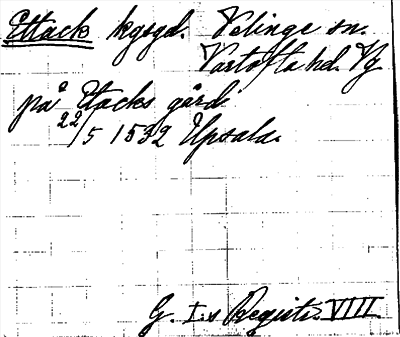 Ettack kgsgd. Velinge sn.
Vartofta hd. Vg
på Etacks gård
22/5 1532 Upsala.
G. I:s Registr. VIII.